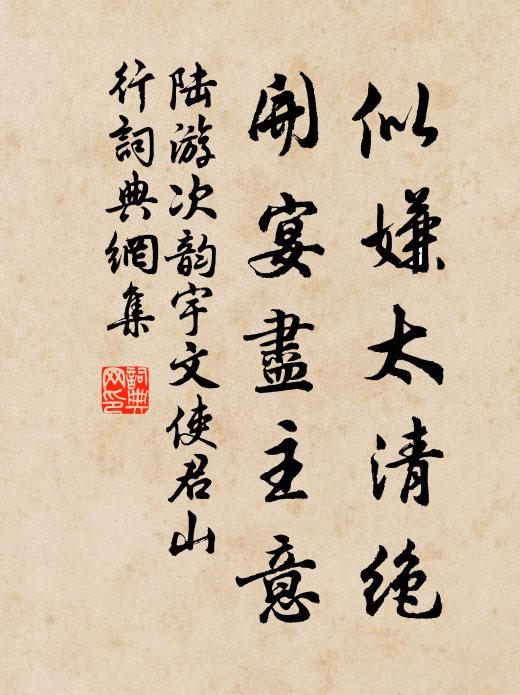 似嫌太清絶
開宴盡主意
陆游次韵宇文使君山
行詞典網集
詞典網印